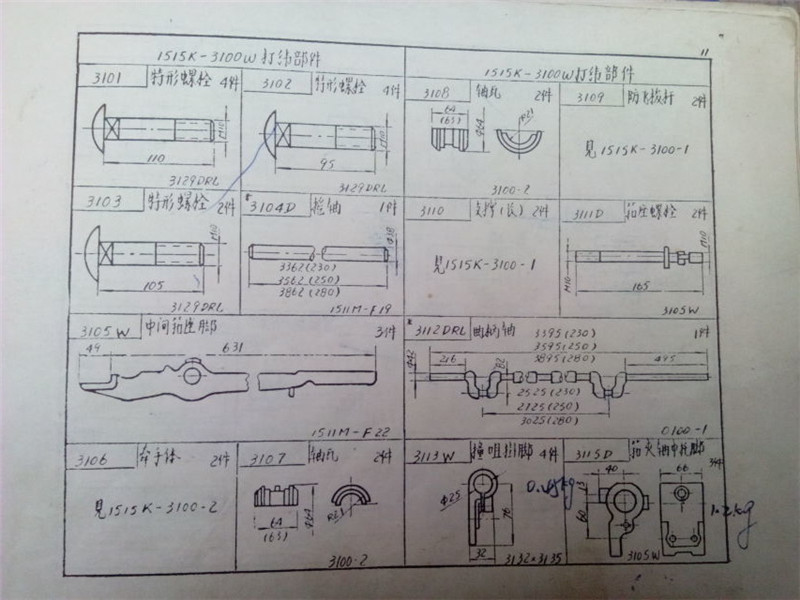 11
1515K-3100W打纬部件
3101 特形螺栓 4件
M10
110
3129DRL
3102 特形螺栓 4件
M10
95
3129DRL
3103 特形螺栓 2件
M10
105
3129DRL
3104D 摇轴 1件
Φ38
3362(230)
3562(250)
3862(280)
1511M-F19
3105W 中间筘座脚 3件
49
631
1511M-F22
3106 牵手体 2件
見1515K-3100-2
3107 轴瓦 2件
64
(63)
Φ64
3100-2
1515K-3100W打纬部件
3108 轴瓦 2件
64
(65)
Φ64
Φ21
3100-2
3109 防飞拔杆 2件
見1515K-3100-1
3110 支撑(长) 2件
見1515K-3100-1
3111D 筘座螺栓 2件
M10
M10
165
3105W
3112DRL 曲柄轴 1件
3395(230)
3595(250)
3895(280)
Φ42
216
82
495
2525(230)
2725(250)
3025(280)
0100-1
3113W 撞咀 脚 4件
Φ25
76
32
3132×3135
3115D 筘夹轴 托脚
40
13
60
66
3105W
1.2kg